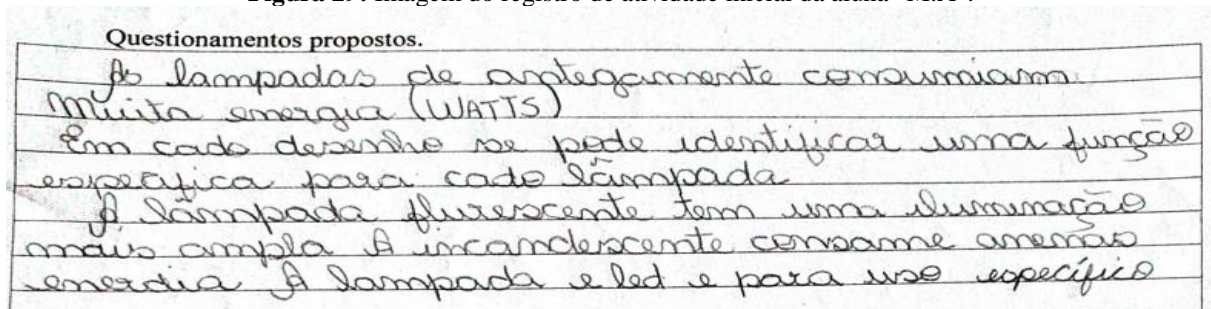 Questionamentos propostos.
As lampadas de antegamente consumiam
Muita energia (WATTS)
Em cado desenho se pode identificar uma função
especifica para cado lâmpada
A lâmpada flurescente tem uma iluminação
mais ampla A incandescente consame
enerdia A lampada e led e para uso específico